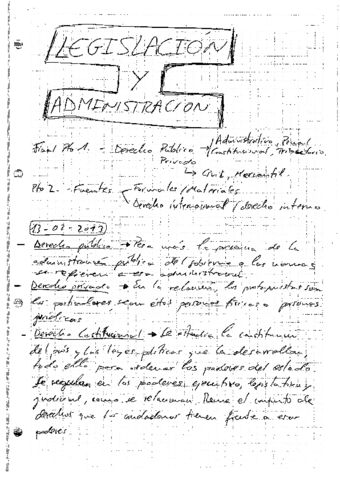 LEGISLACIÓN
Y
ADMINISTRACIÓN
Final Pto 1. - Derecho Público → Administrativo, Penal
Constitucional, Tributario
Privado
↳ Civil, Mercantil
Pto 2. - Fuentes Formales / Materiales
Derecho internacional / derecho interno
13-02-2013
- Derecho público → Pesa más la presencia de la
administración pública del gobierno a las normas
se refieren a esa administración
- Derecho privado → En la relación, los protagonistas son
los particulares sean estos personas físicas o personas
jurídicas
- Derecho Constitucional → Se estudia la constitución
del país y las leyes políticas que la desarrollan,
todo ello para ordenar los poderes del estado.
Se regulan en los poderes ejecutivo, legislativo y
judicial, como se relacionan. Reúne el conjunto de
derechos que los ciudadanos tienen frente a esos
poderes